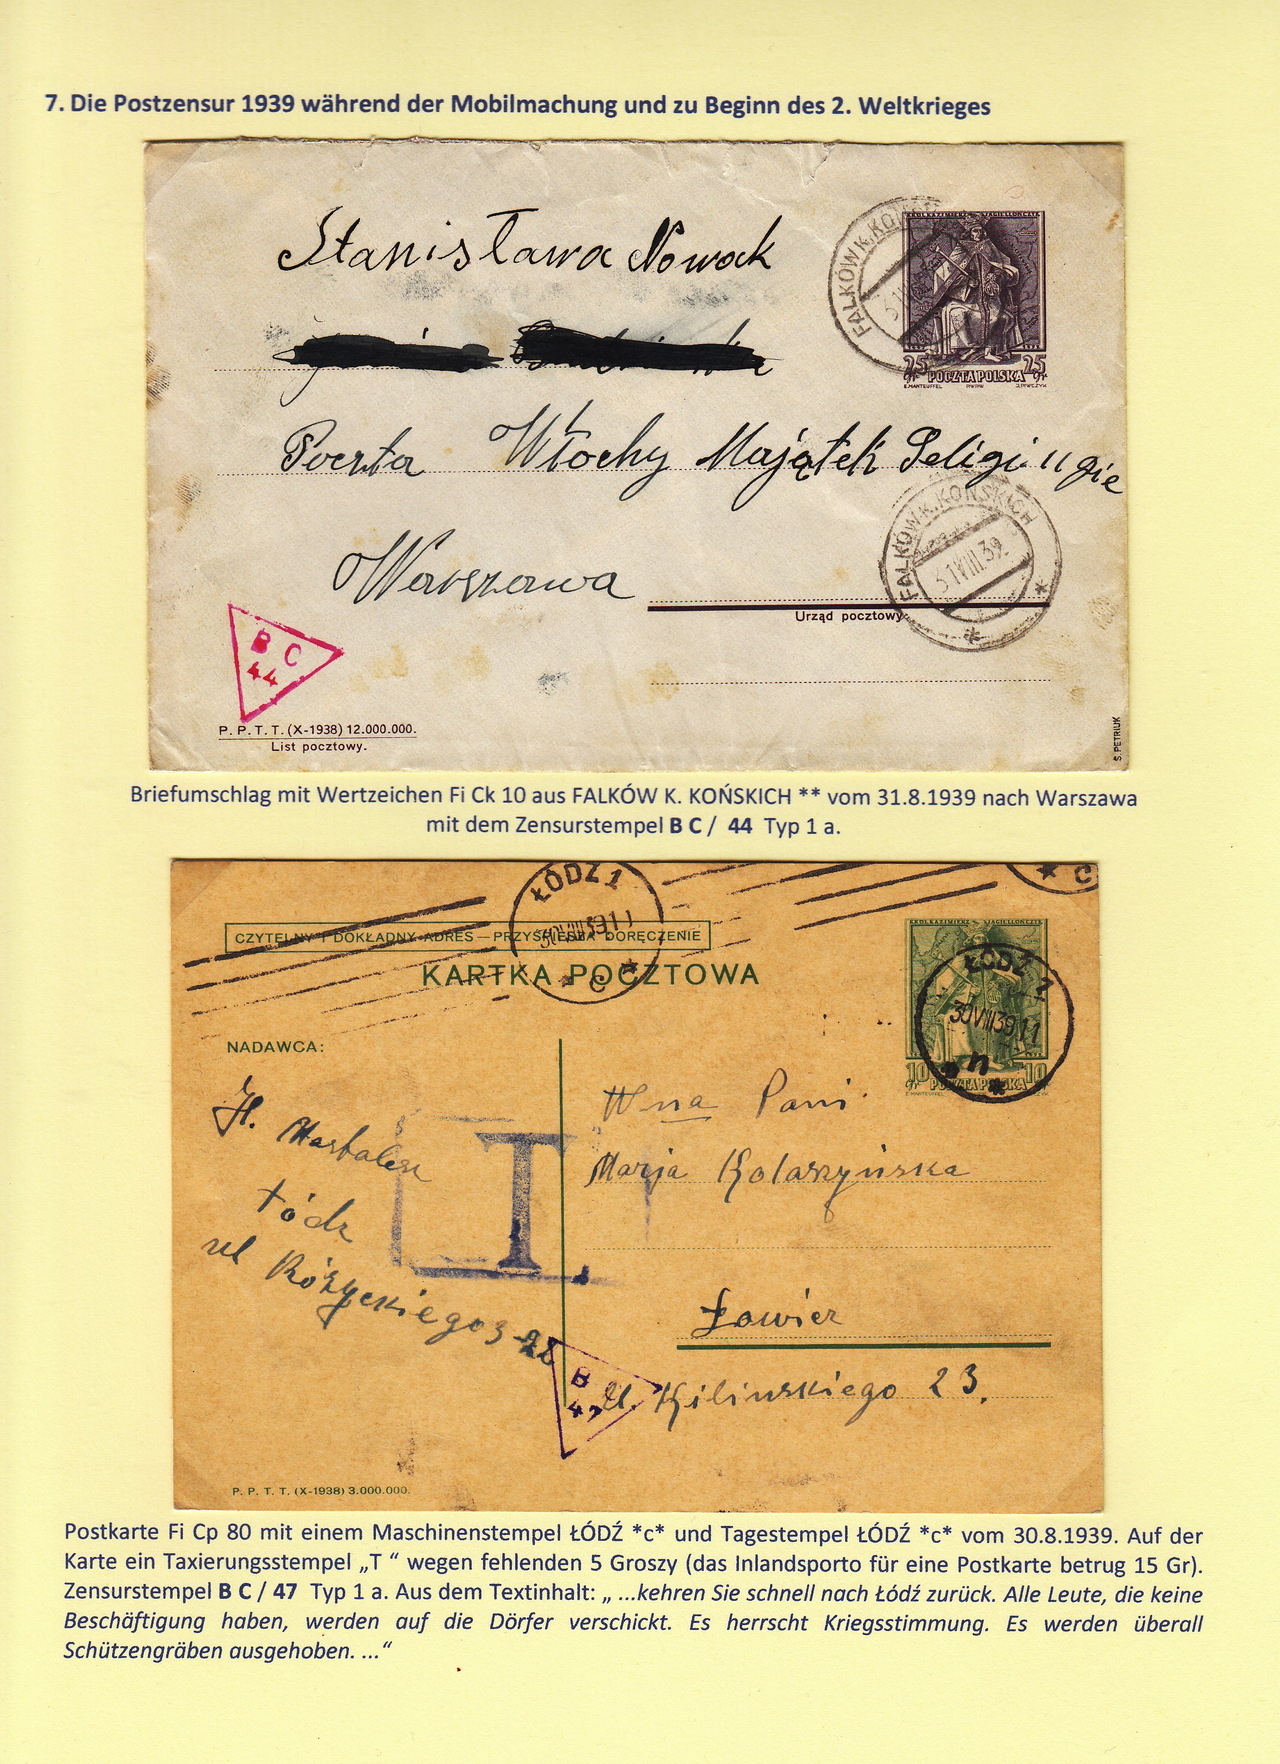 7. Die Postzensur 1939 während der Mobilmachung und zu Beginn des 2. Weltkrieges
Stanisława Nowak
FALKÓW K. KOŃSKICH
KRÓL KAZIMIERZ JAGIELLOŃCZYK
25 gr POCZTA POLSKA 25 gr
E. MANTEUFFEL PWPW
Poczta Włochy Majątek
FALKÓW K. KOŃSKICH
31 VIII. 39
Warszawa
Urząd pocztowy
B C
44
P. P. T. T. (X-1938) 12.000.000.
List pocztowy.
S. PETRIUK
Briefumschlag mit Wertzeichen Fi Ck 10 aus FALKÓW K. KOŃSKICH ** vom 31.8.1939 nach Warszawa
mit dem Zensurstempel B C / 44 Typ 1 a.
ŁÓDŹ 1
* c *
* c
CZYTELNY I DOKŁADNY ADRES — PRZYŚPIESZA DORĘCZENIE
KARTKA POCZTOWA
KRÓL KAZIMIERZ JAGIELLOŃCZYK
ŁÓDŹ
30 VIII 39 11
10 gr POCZTA POLSKA 10 gr
E. MANTEUFFEL
NADAWCA:
Wna Pani
H.
Marja
Łódz
T
ul Różyckiego 3
Łowicz
B
47
ul. Kilinskiego 23.
P. P. T. T. (X-1938) 3.000.000.
Postkarte Fi Cp 80 mit einem Maschinenstempel ŁÓDŹ *c* und Tagestempel ŁÓDŹ *c* vom 30.8.1939. Auf der
Karte ein Taxierungsstempel „T “ wegen fehlenden 5 Groszy (das Inlandsporto für eine Postkarte betrug 15 Gr).
Zensurstempel B C / 47 Typ 1 a. Aus dem Textinhalt: „ ...kehren Sie schnell nach Łódź zurück. Alle Leute, die keine
Beschäftigung haben, werden auf die Dörfer verschickt. Es herrscht Kriegsstimmung. Es werden überall
Schützengräben ausgehoben. ...“